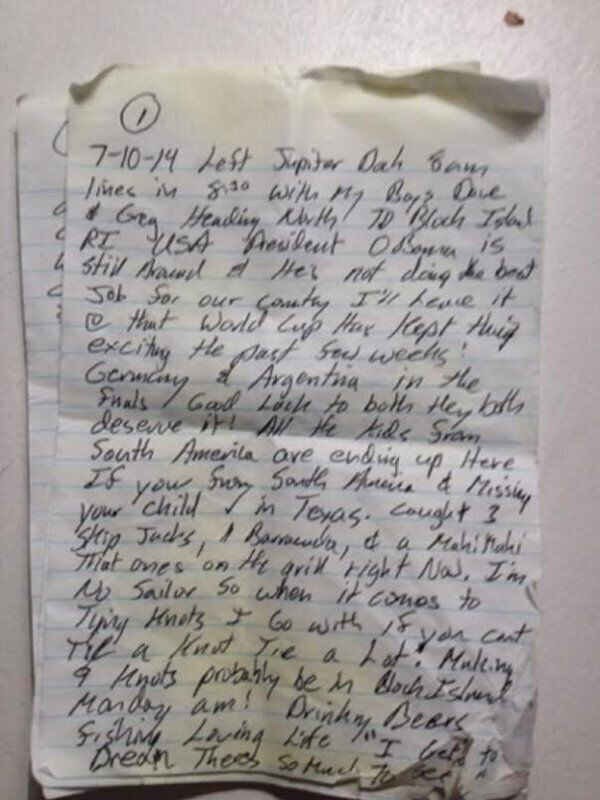 1
7-10-14 Left Jupiter Dah 8am
lines in 8:30 With My Boys Dave
& Greg Heading North TO Block Island
RI USA President Obamma is
Still Around & He's not doing the best
Job for our Country I'll Leave it
@ that World Cup Has Kept thing
exciting the past few weeks!
Germany & Argentina in the
finals Good Luck to both they both
deserve it! All the Kids from
South America are ending up Here
If your from South America & Missing
your child in Texas. Caught 3
Skip Jacks, 1 Barracuda, & a Mahi Mahi
That ones on the grill right Now. I'm
No Sailor So when it comes to
Tying Knots I Go with if you cant
Tie a Knot Tie a Lot! Making
9 Knots probably be in Block Island
Monday am! Drinking Beers
fishing Loving Life "I Gets to
Dream Theres So Much To See"